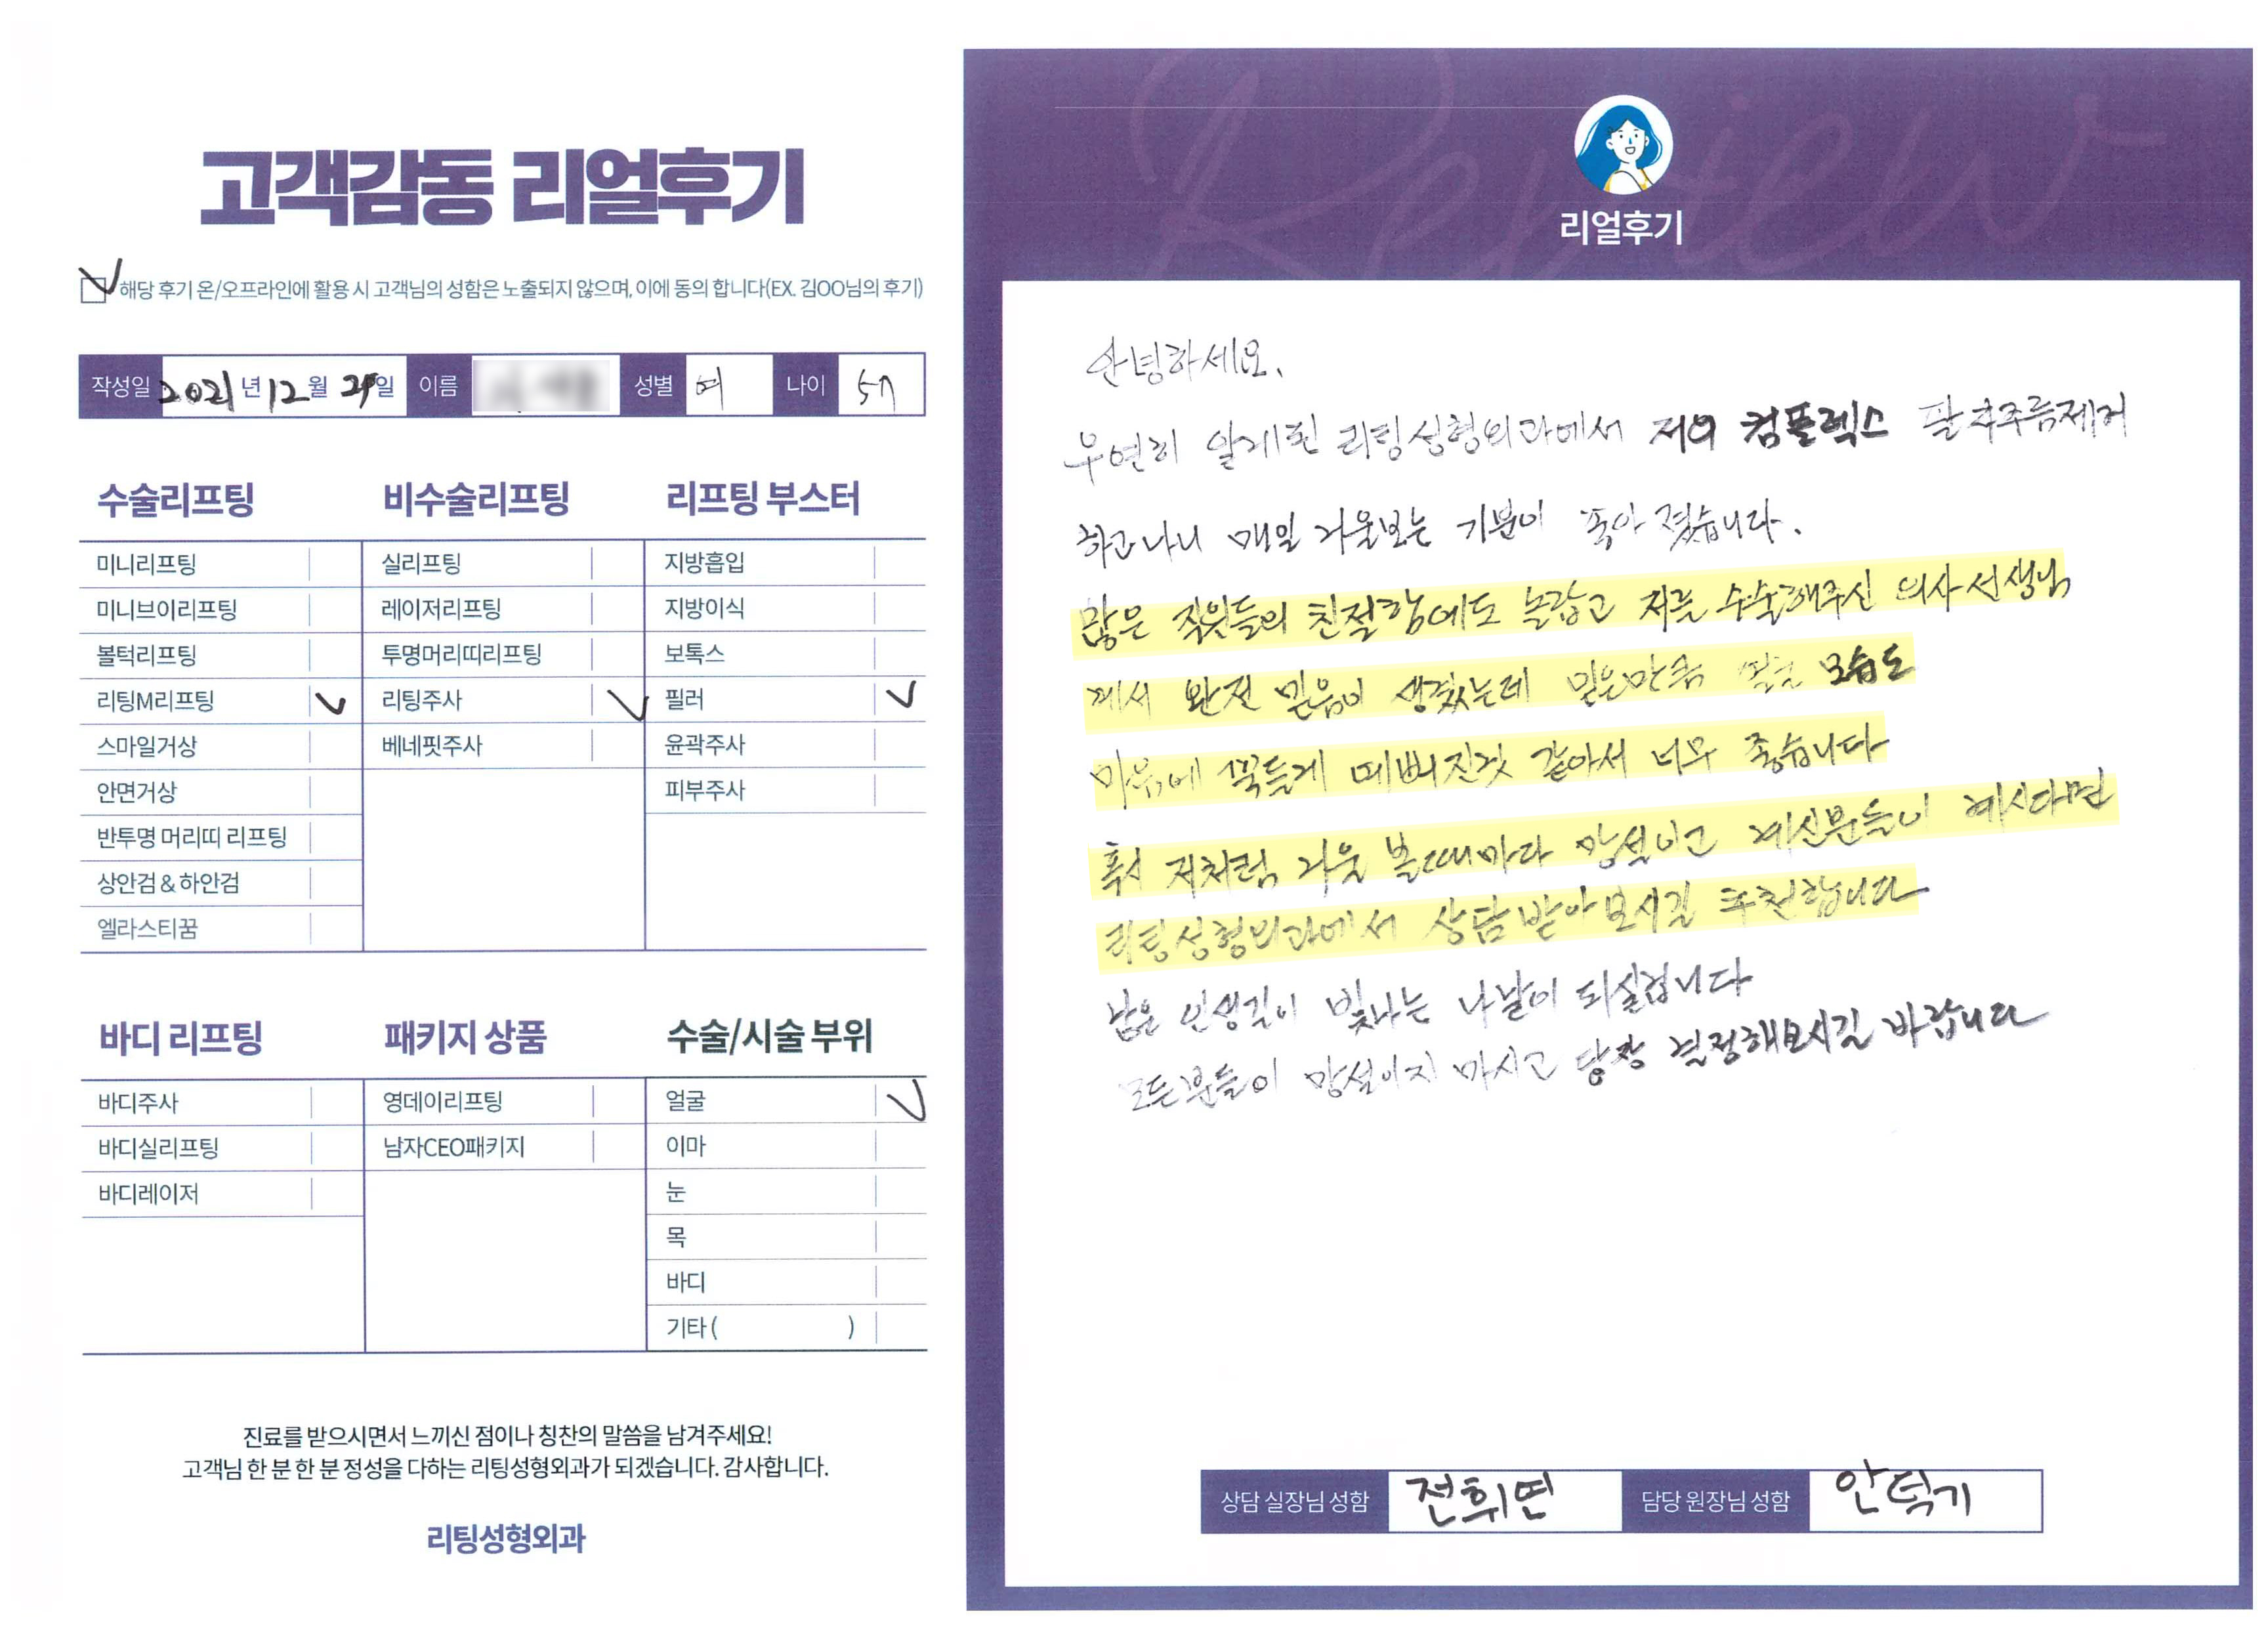 고객감동 리얼후기
해당 후기 온/오프라인에 활용 시 고객님의 성함은 노출되지 않으며, 이에 동의 합니다(EX. 김OO님의 후기)
작성일 2021년 12월 일 이름 성별 여 나이 57
수술리프팅
미니리프팅
미니브이리프팅
볼턱리프팅
리팅M리프팅
스마일거상
안면거상
반투명 머리띠 리프팅
상안검 & 하안검
엘라스티꿈
비수술리프팅
실리프팅
레이저리프팅
투명머리띠리프팅
리팅주사
베네핏주사
리프팅 부스터
지방흡입
지방이식
보톡스
필러
윤곽주사
피부주사
바디 리프팅
바디주사
바디실리프팅
바디레이저
패키지 상품
영데이리프팅
남자CEO패키지
수술/시술 부위
얼굴
이마
눈
목
바디
기타 ( )
진료를 받으시면서 느끼신 점이나 칭찬의 말씀을 남겨주세요!
고객님 한 분 한 분 정성을 다하는 리팅성형외과가 되겠습니다. 감사합니다.
리팅성형외과
Review
리얼후기
안녕하세요.
우연히 알게된 리팅성형외과에서 저의 컴플렉스 팔자주름제거
하고나니 매일 거울보는 기분이 좋아 졌습니다.
많은 직원들의 친절함에도 놀랐고 저를 수술해주신 의사선생님
께서 완전 믿음이 생겼는데 믿은만큼 얼굴 모습도
마음에 꼭들게 예뻐진것 같아서 너무 좋습니다
혹시 저처럼 거울 볼때마다 망설이고 계신분들이 계시다면
리팅성형외과에서 상담받아보시길 추천합니다
남은 인생길이 빛나는 나날이 되실겁니다
모든분들이 망설이지 마시고 당장 결정해보시길 바랍니다
상담 실장님 성함 전휘연 담당 원장님 성함 안덕기